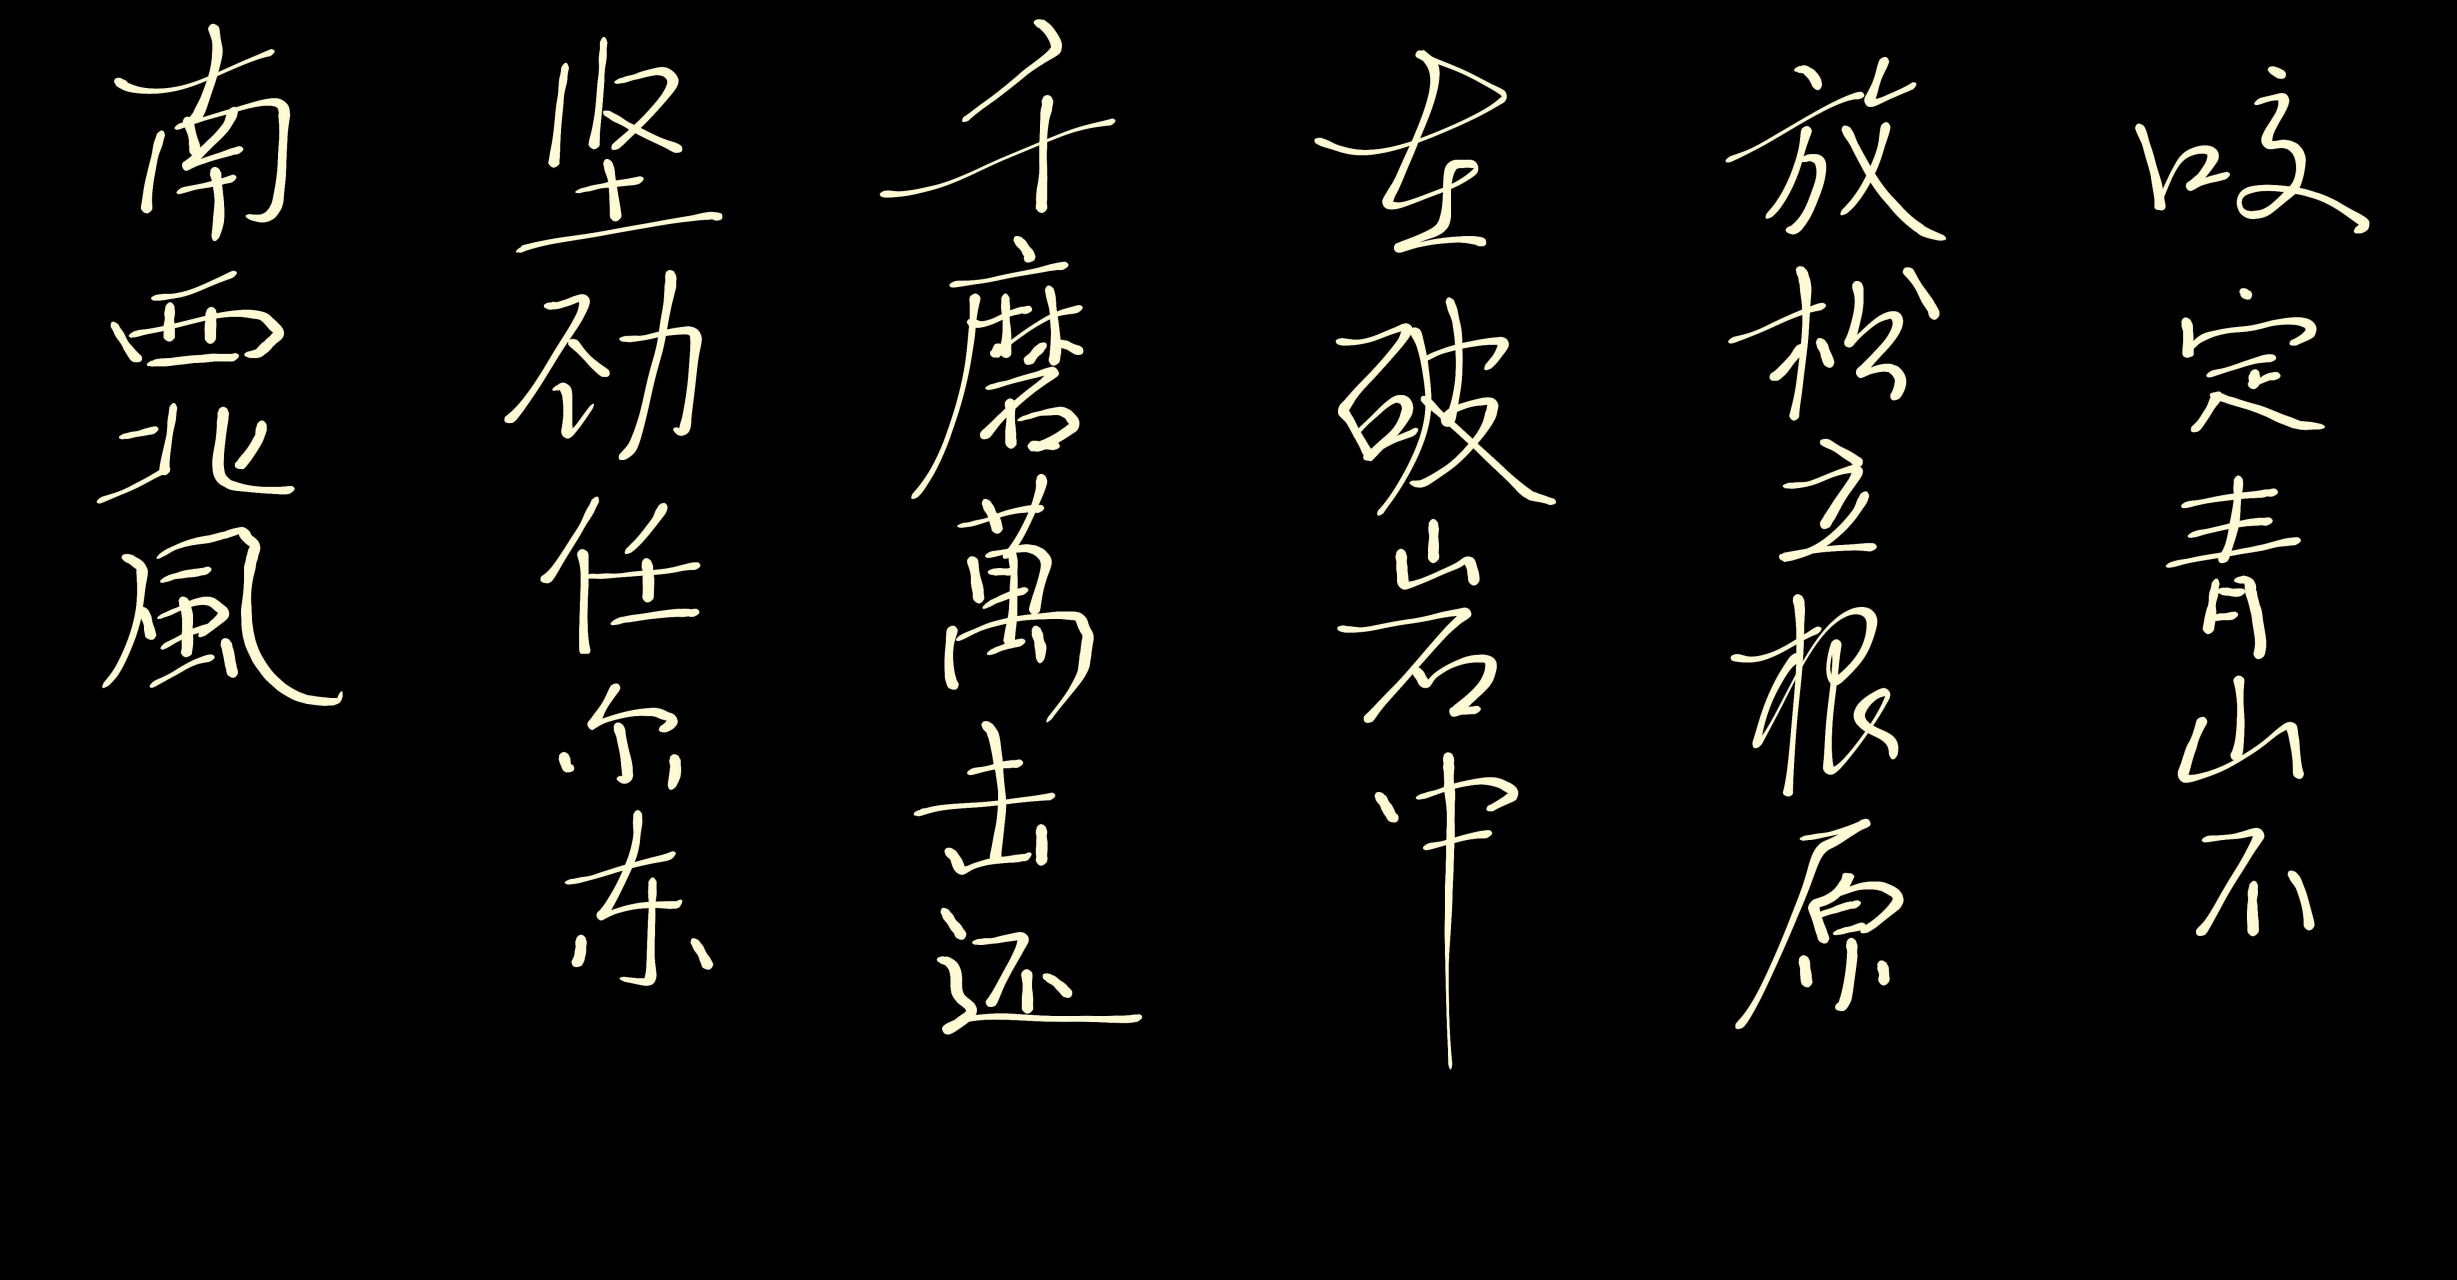 咬定青山不
放松立根原
在破岩中
千磨萬击还
坚劲任尔东
南西北風